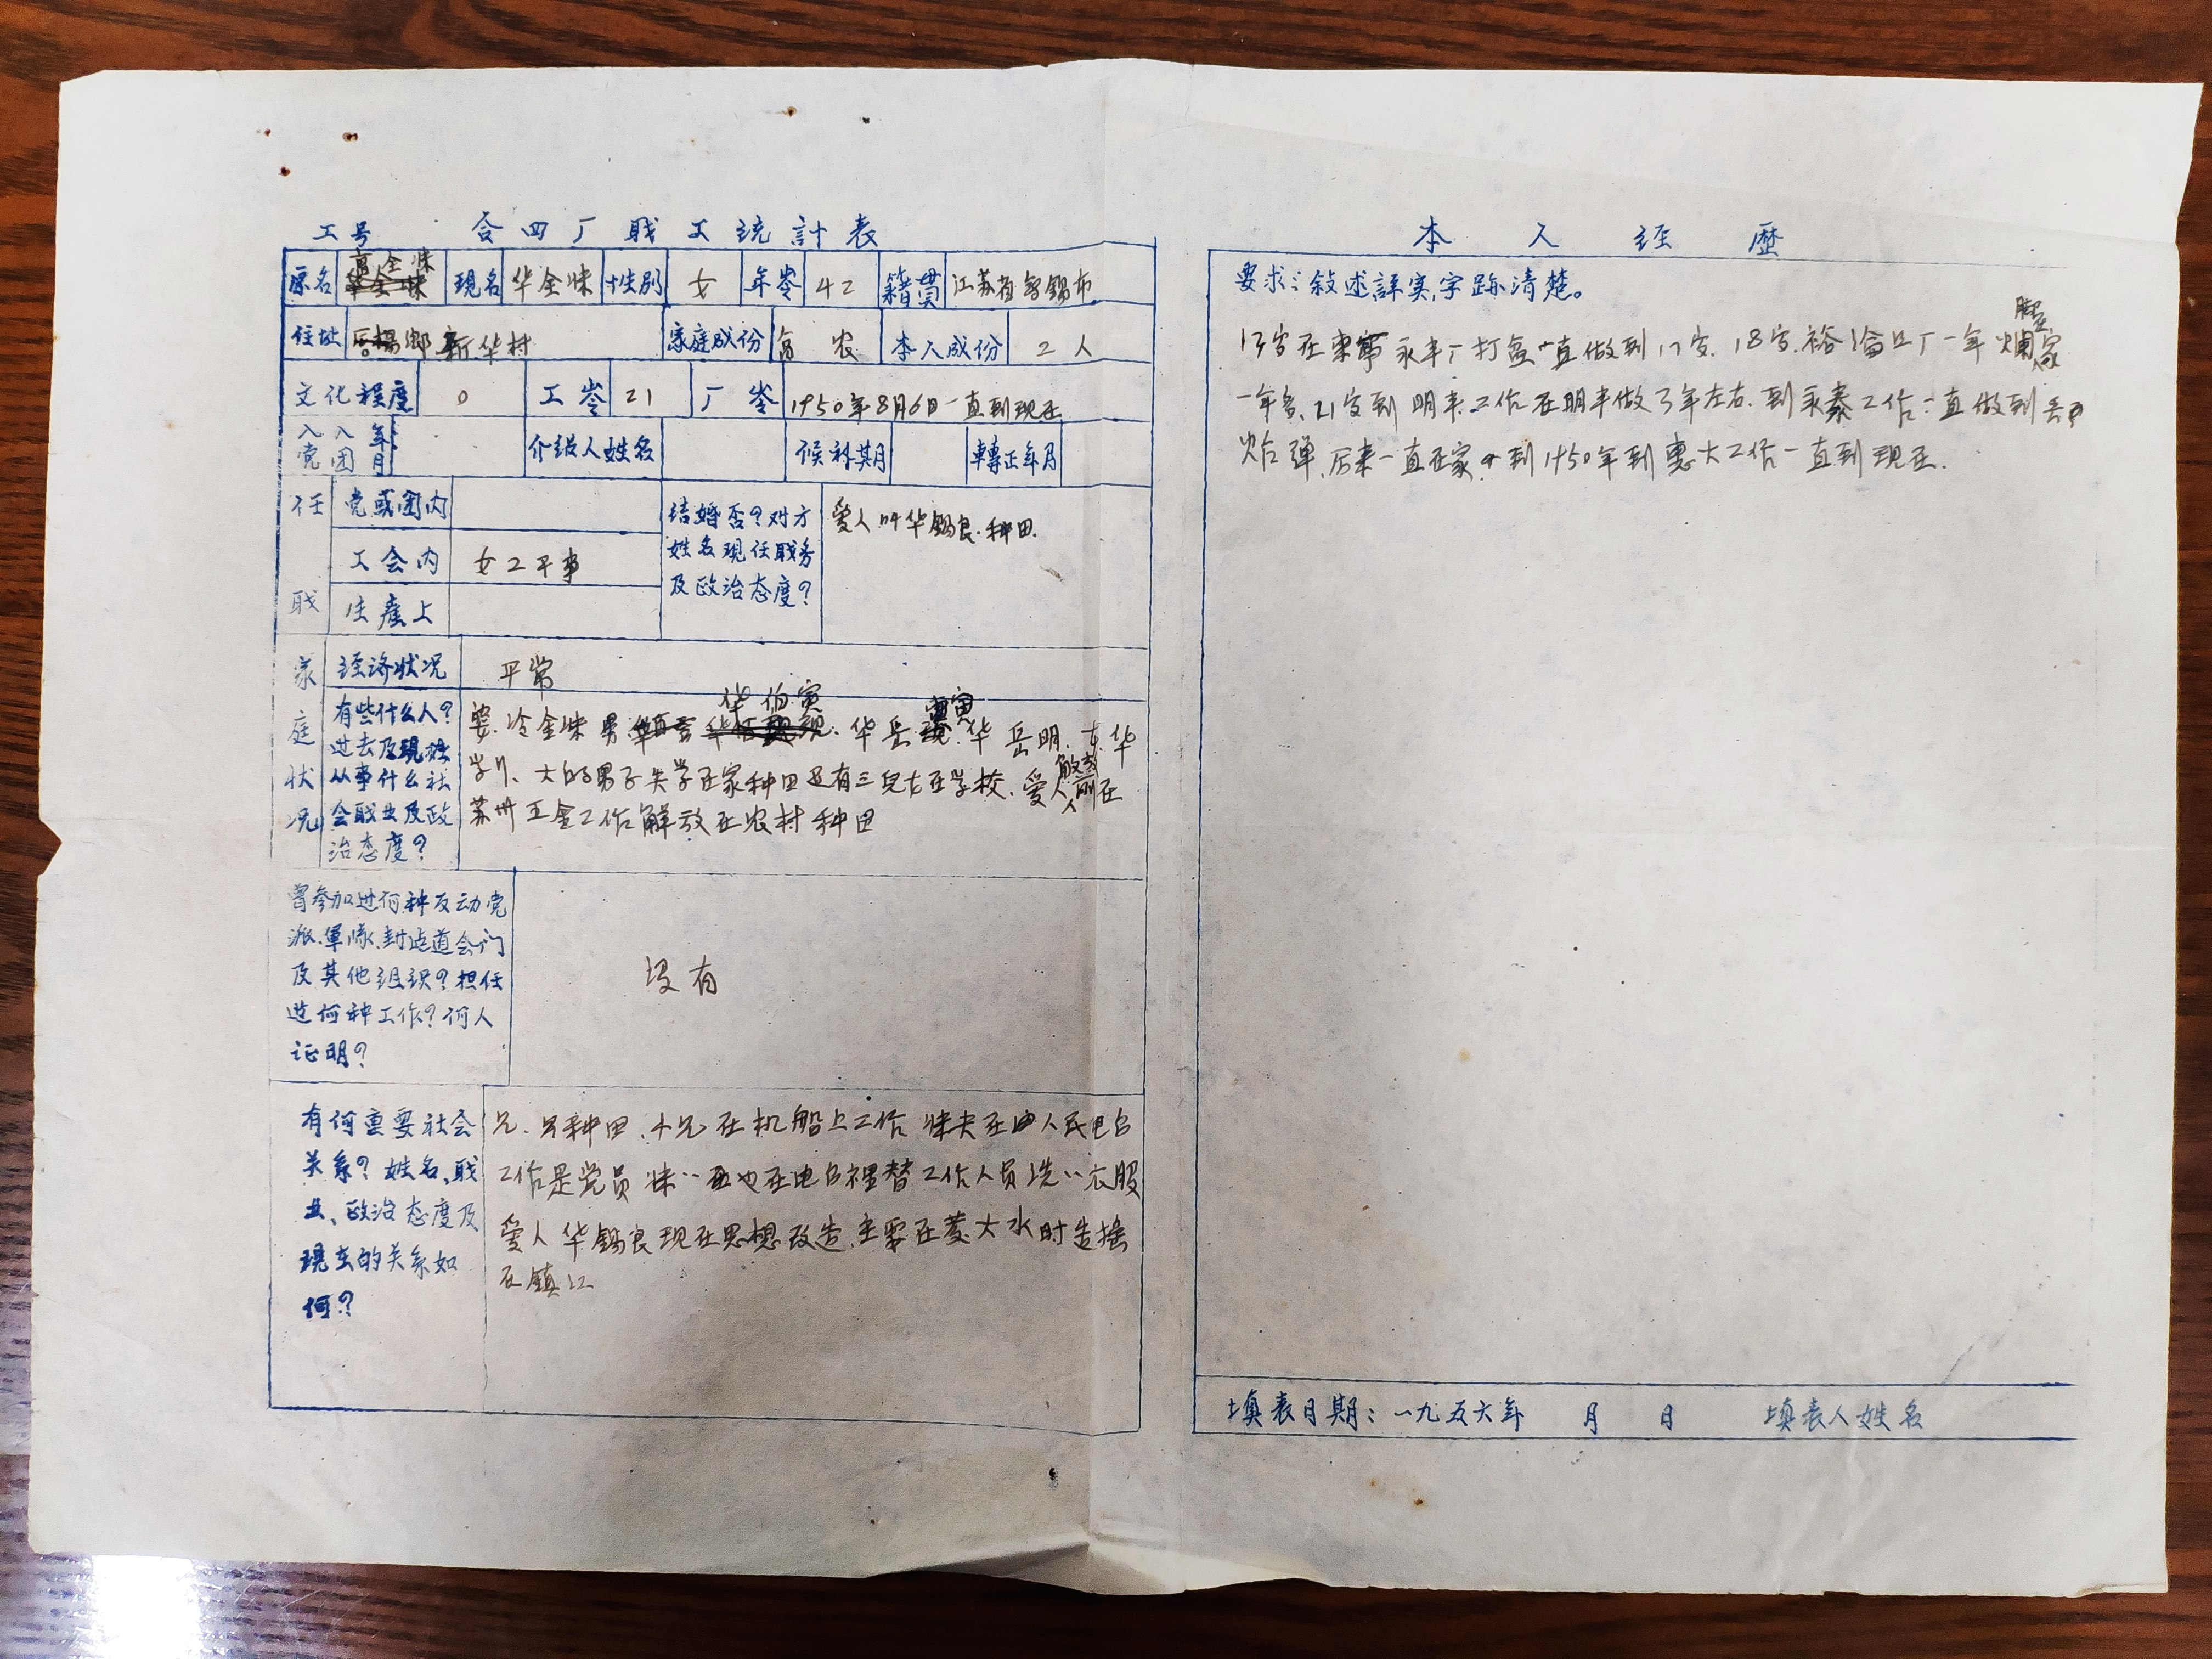 工号 合四厂职工统計表
原名 高金妹 現名 华金妹 性别 女 年岺 42 籍貫 江苏省无锡市
住址 后楊鄉新华村 家庭成份 富农 本人成份 工人
文化程度 0 工岺 21 厂岺 1950年8月6日一直到现在
入党 入团 年月 介绍人姓名 候补期 轉正年月
任职 党或团内
工会内 女工干事
生產上
结婚否?对方姓名現任职务及政治态度? 爱人叫华锡良.种田.
家庭状况 经济状况 平常
有些什么人?
过去及現在
从事什么社
会职业及政
治态度?
冷金妹 男 华伯寅.华岳寅.华岳明.女华
大的男子失学在家种田还有三兒女在学校.爱人解放前在
苏州五金工作解放在农村种田
曾参加过何种反动党
派.軍隊.封建道会门
及其他组织?担任
过何种工作?何人
证明?
没有
有何重要社会
关系?姓名、职
业、政治态度及
現在的关系如
何?
兄.另种田.小兄在机船上工作 妹夫在 人民电台
工作是党员 妹妹 也在电台裡替工作人员洗洗衣服
爱人华锡良现在思想改造.主要在发大水时造摇
在镇江
本人经歷
要求:敘述詳实,字跡清楚。
13岁在 永丰厂打盆一直做到17岁.18岁.裕 厂一年 脚 烂 家
一年多.21岁到明丰工作在明丰做3年左右.到永泰工作一直做到丢
炸弹.后来一直在家.到1950年到惠大工作一直到现在.
填表日期:一九五六年 月 日 填表人姓名